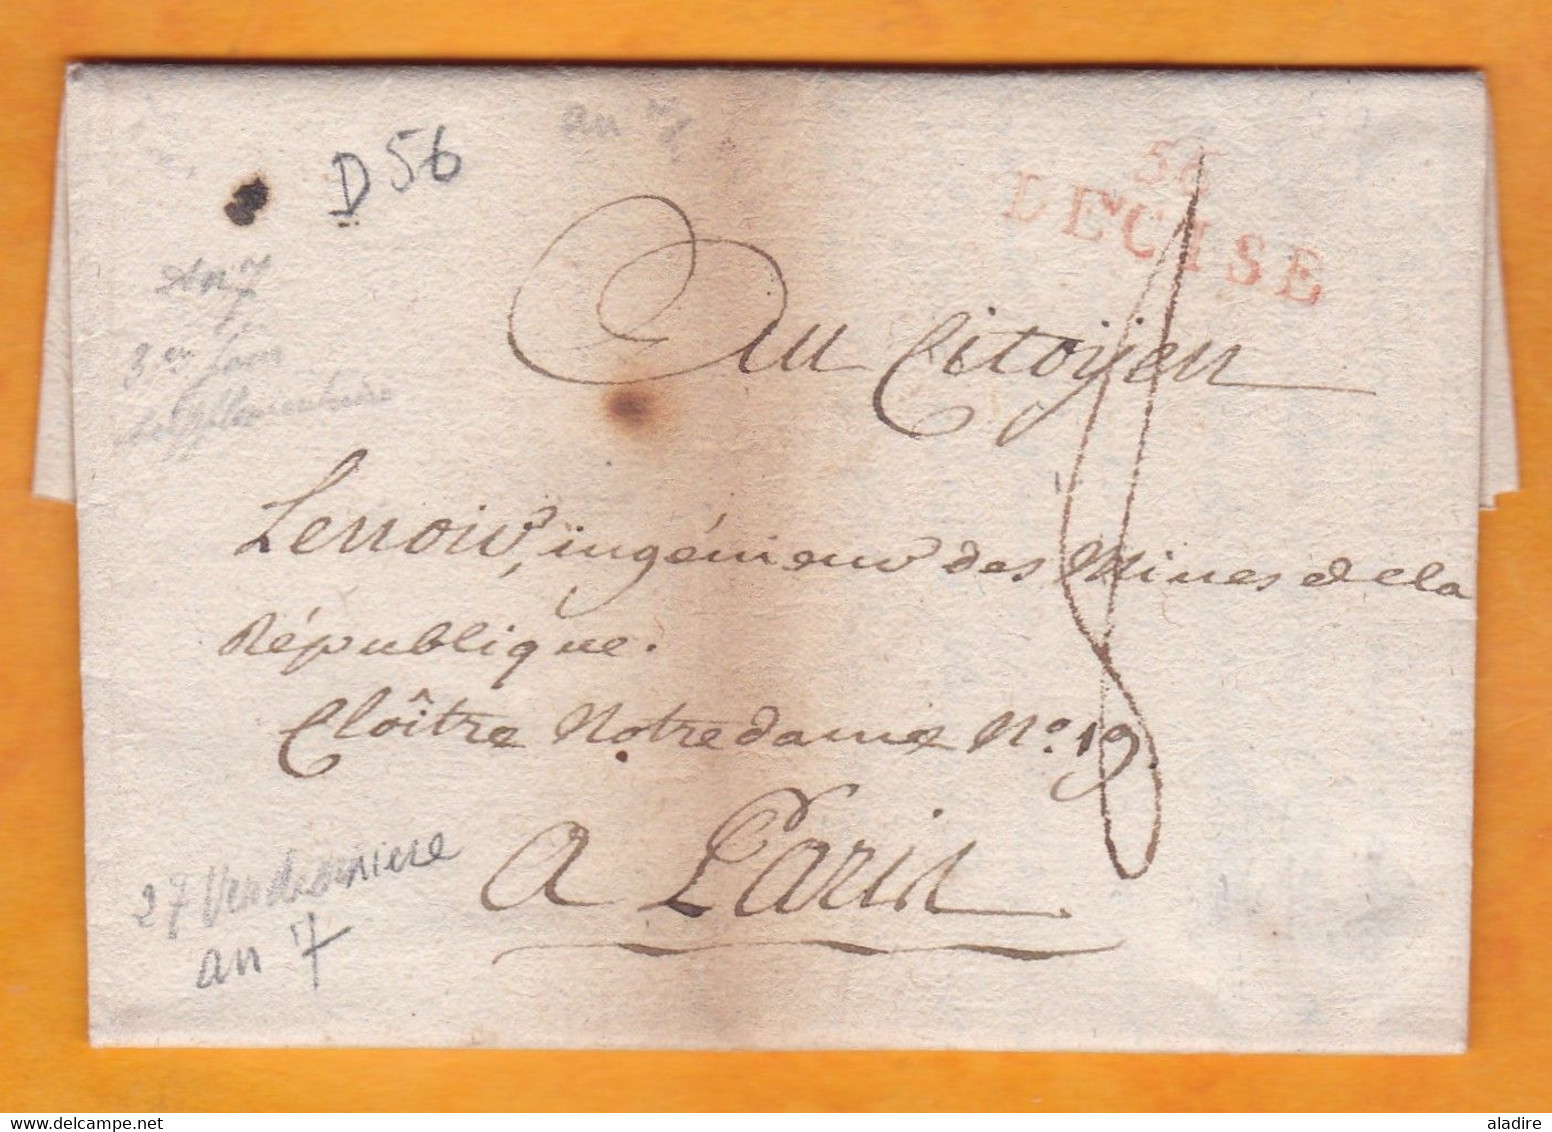 an 7
D 56
56
DECISE
An 7
Au Citoyen
8
Lenoir, ingénieur des Mines de la
République.
Cloître Notre dame No. 19.
a Paris
27 Vendemiere
an 7
delcampe.net
aladire